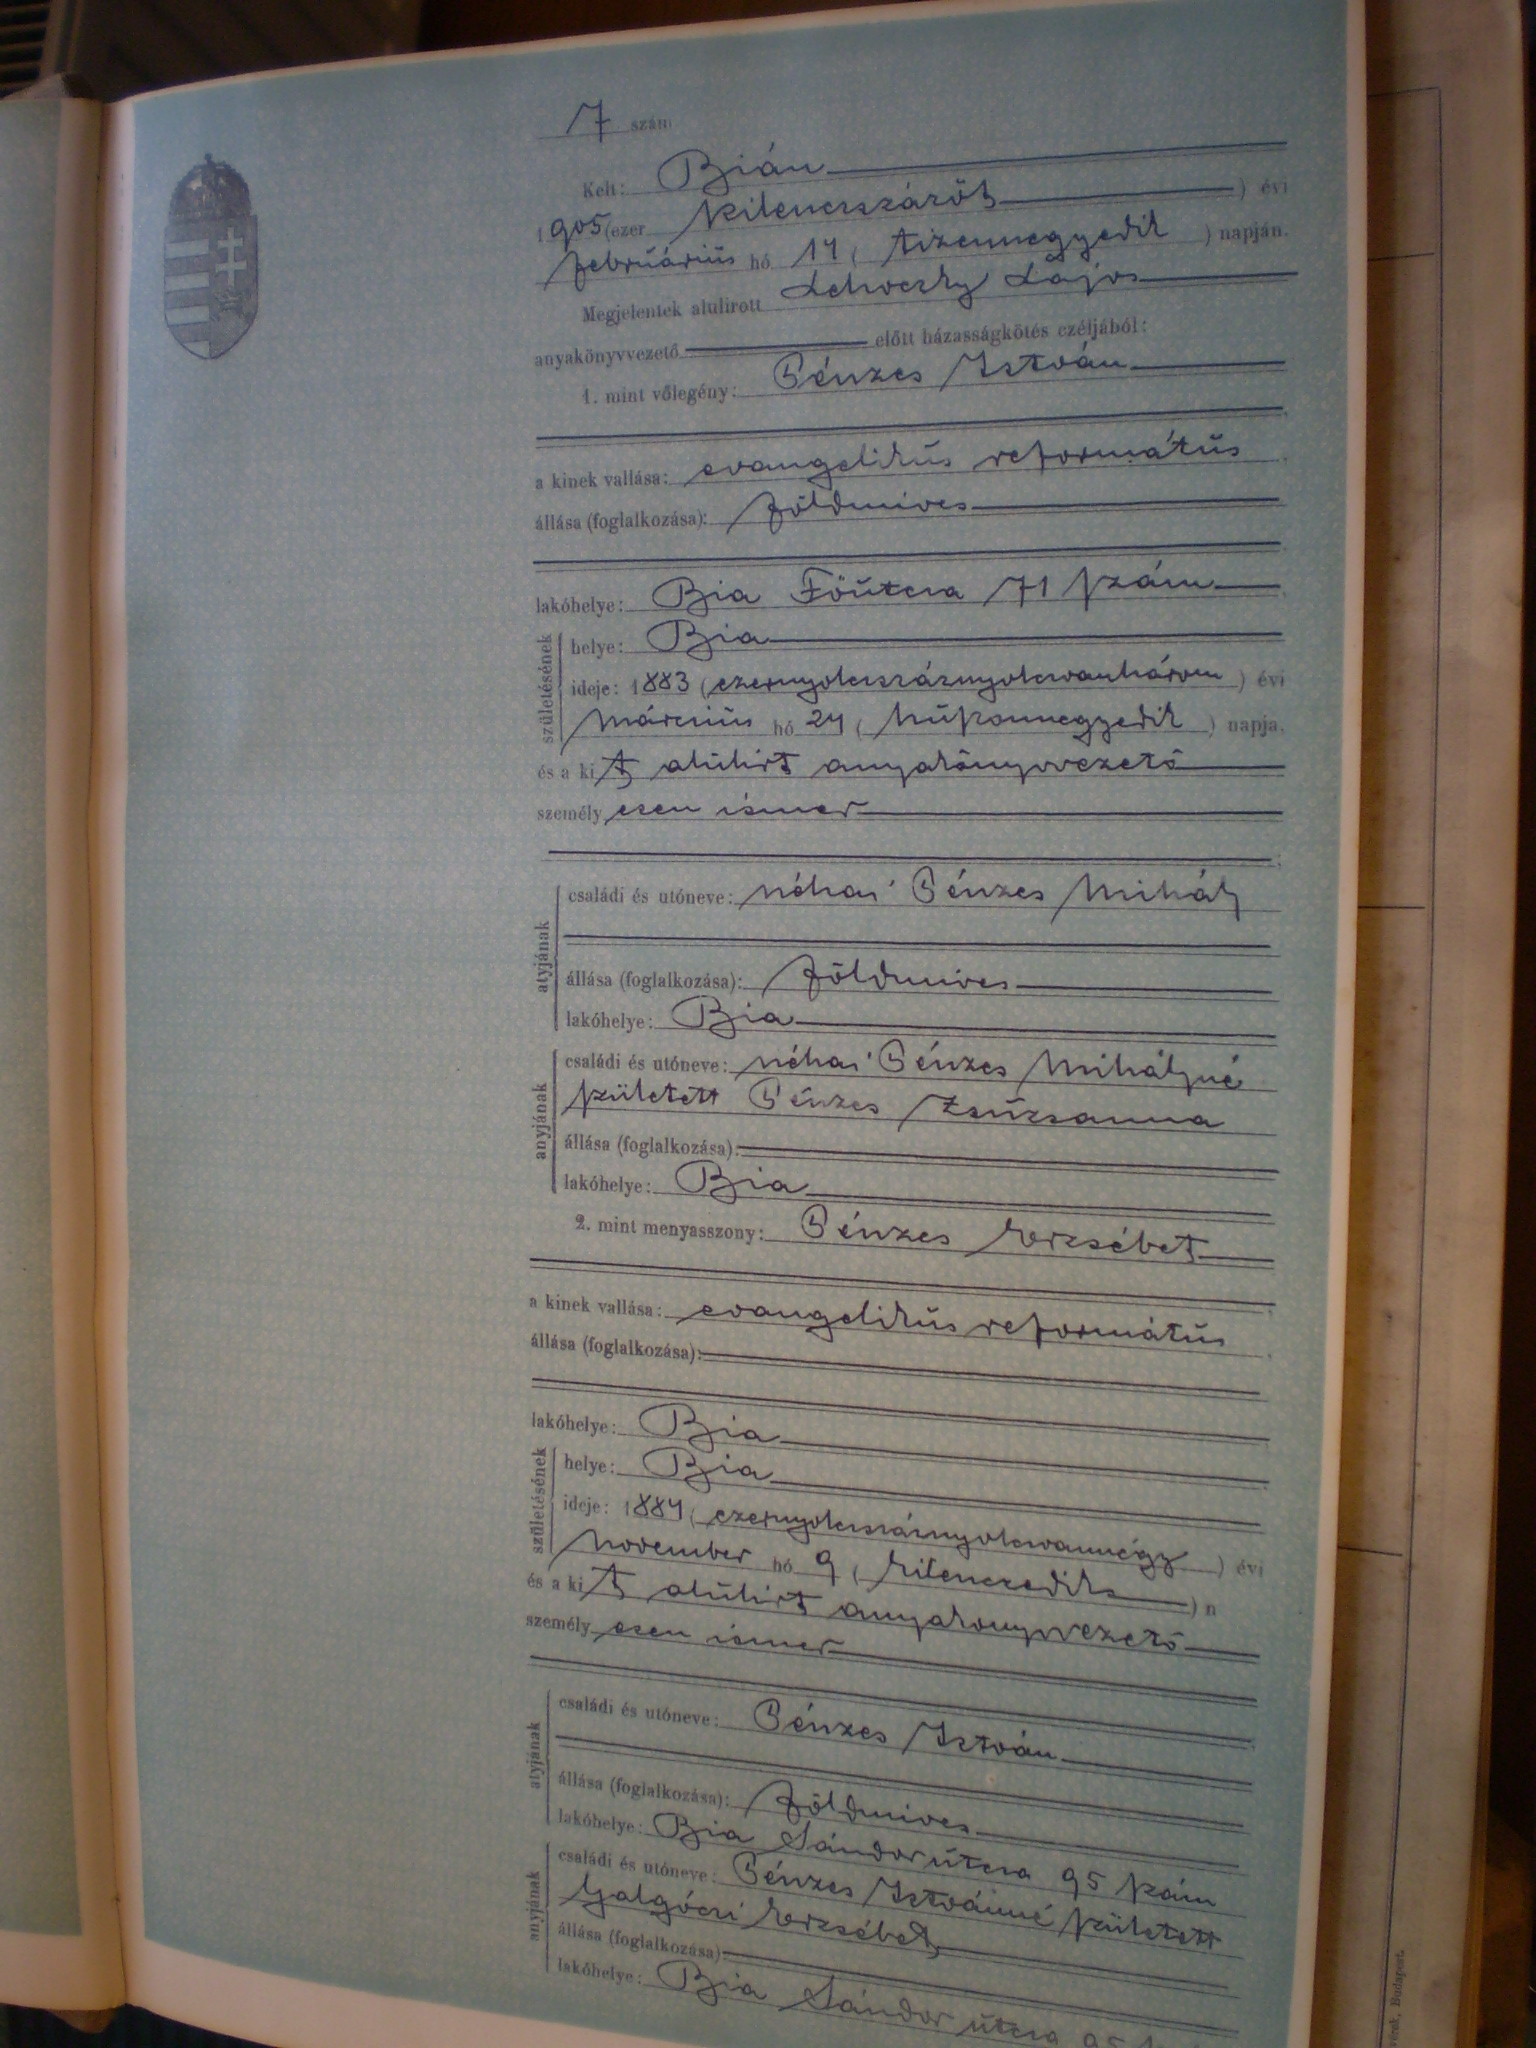 7 szám
Kelt: Bián
1905 (ezer kilenczszázöt) évi
februáŕiús hó 14 (tizennegyedik) napján.
Megjelentek alulirott Lehoczky Lajos
anyakönyvvezető előtt házasságkötés czéljából:
1. mint vőlegény: Pénzes István
a kinek vallása: evangelikús református
állása (foglalkozása): földmives
lakóhelye: Bia Főútcza 71 szám
születésének
helye: Bia
ideje: 1883 (ezernyolczszáznyolczvanhárom) évi
márcziús hó 24 (húszonnegyedik) napja.
és a kit alúlirt anyakönyvvezető
személyesen ismer
atyjának
családi és utóneve: néhai Pénzes Mihály
állása (foglalkozása): földmives
lakóhelye: Bia
anyjának
családi és utóneve: néhai Pénzes Mihályné
született Pénzes Zsúzsanna
állása (foglalkozása):
lakóhelye: Bia
2. mint menyasszony: Pénzes Erzsébet
a kinek vallása: evangelikús református
állása (foglalkozása):
lakóhelye: Bia
születésének
helye: Bia
ideje: 1884 (ezernyolczszáznyolczvannégy) évi
november hó 9 (kilenczedik) n
és a kit alúlirt anyakonyvvezető
személyesen ismer
atyjának
családi és utóneve: Pénzes István
állása (foglalkozása): földmives
lakóhelye: Bia Sándor útcza 95 szám
anyjának
családi és utóneve: Pénzes Istvánné született
Galgóczi Erzsébet
állása (foglalkozása)
lakóhelye: Bia Sándor útcza 95
Budapest.